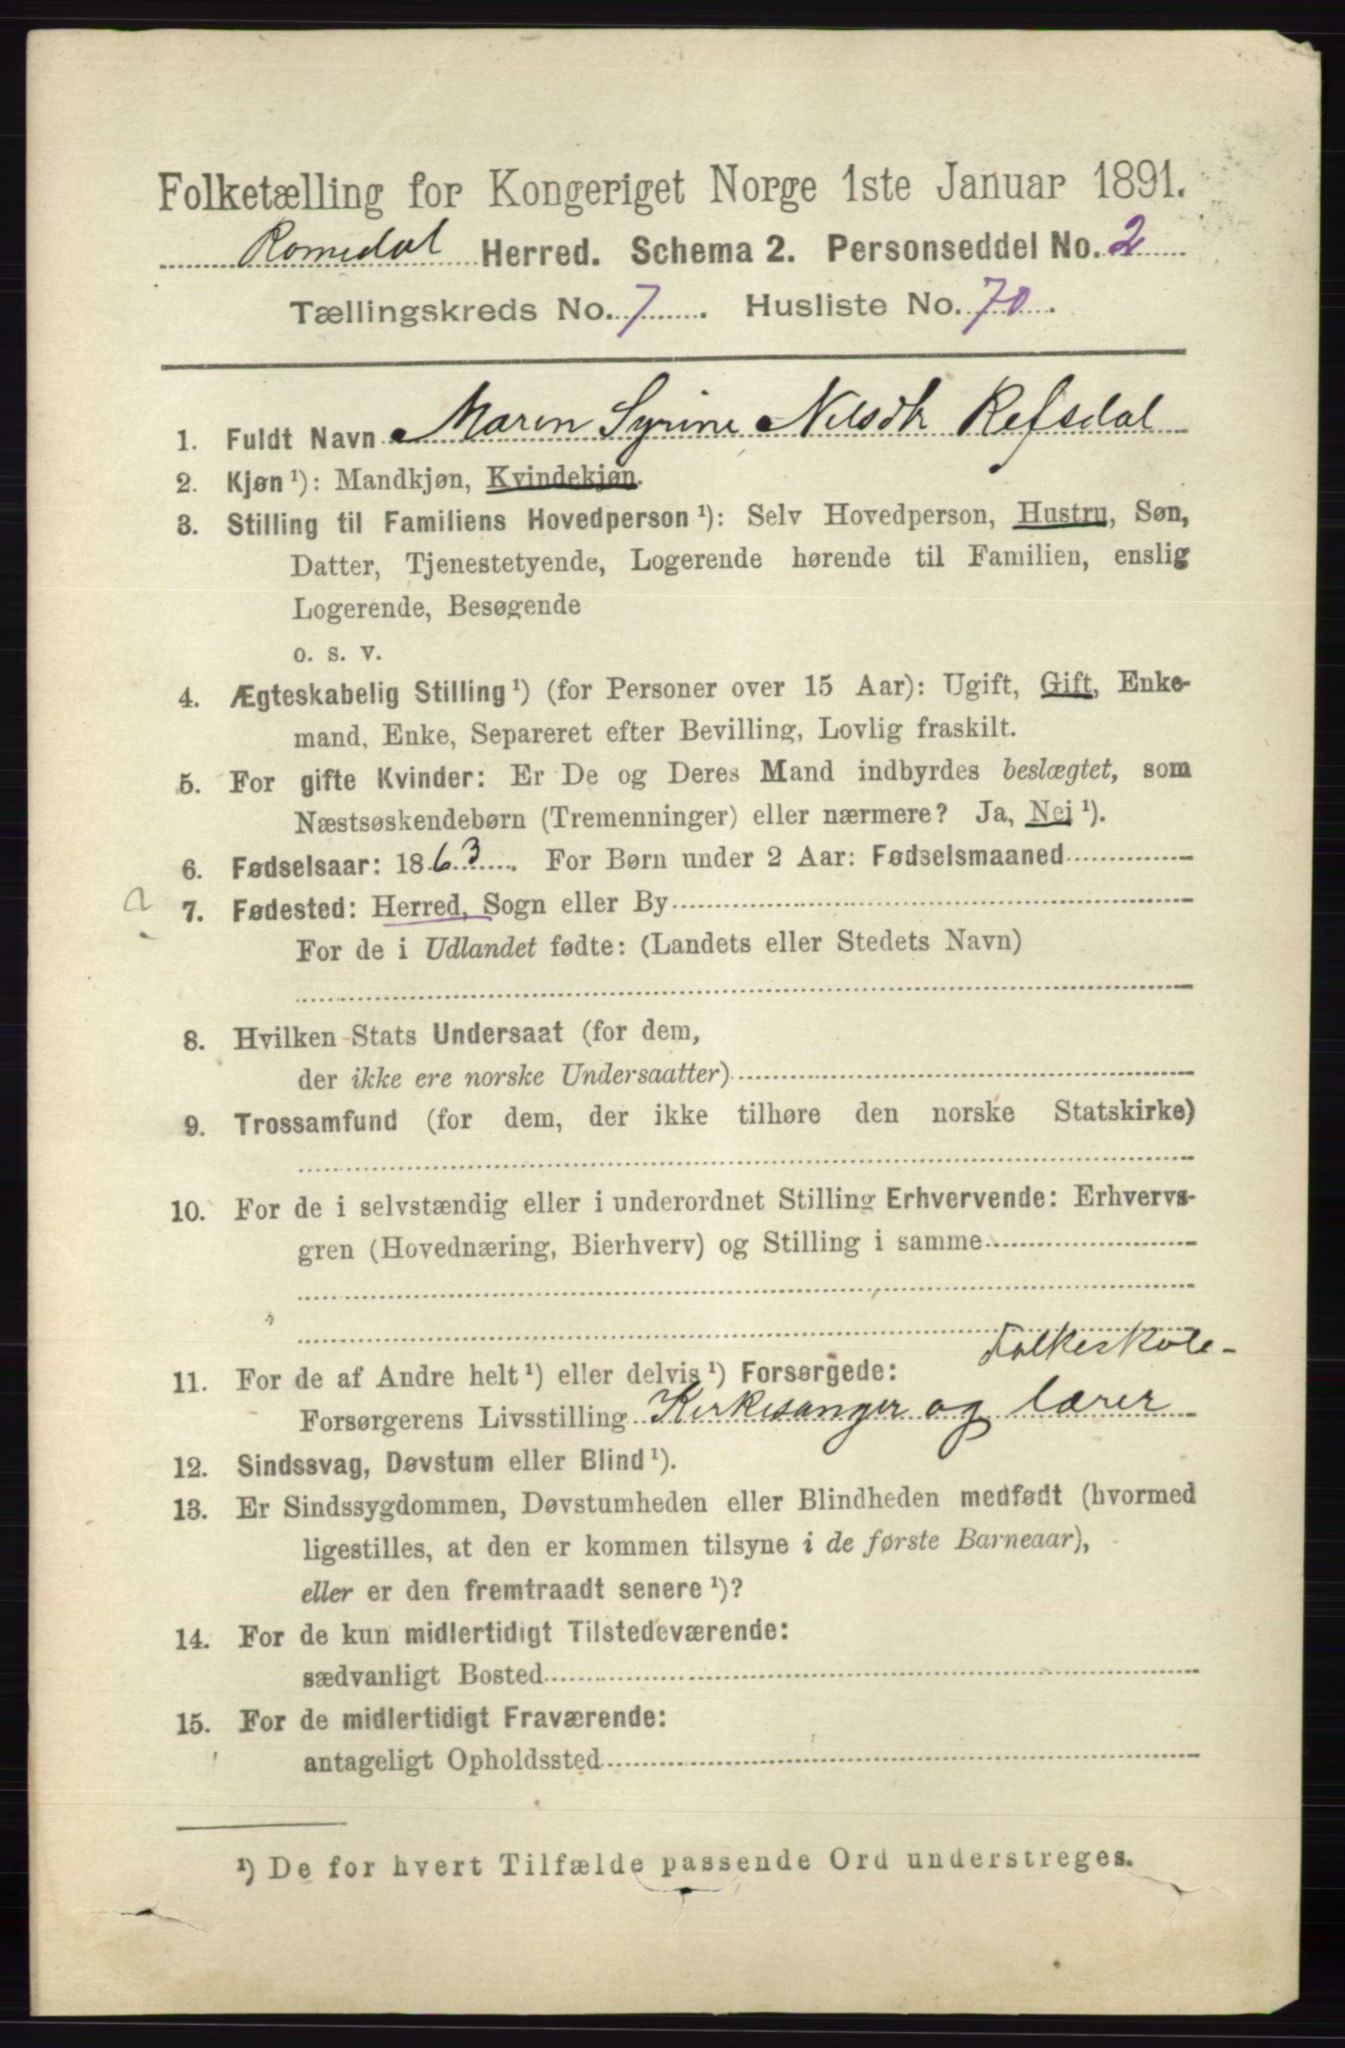 Folketælling for Kongeriget Norge 1ste Januar 1891.
Romedal Herred. Schema 2. Personseddel No. 2
Tællingskreds No. 7. Husliste No. 70.
1. Fuldt Navn Maren Syrine Nilsdtr Refsdal
2. Kjøn ¹): Mandkjøn, Kvindekjøn.
3. Stilling til Familiens Hovedperson ¹): Selv Hovedperson, Hustru, Søn,
Datter, Tjenestetyende, Logerende hørende til Familien, enslig
Logerende, Besøgende
o. s. v.
4. Ægteskabelig Stilling ¹) (for Personer over 15 Aar): Ugift, Gift, Enke-
mand, Enke, Separeret efter Bevilling, Lovlig fraskilt.
5. For gifte Kvinder: Er De og Deres Mand indbyrdes beslægtet, som
Næstsøskendebørn (Tremenninger) eller nærmere? Ja, Nej ¹).
6. Fødselsaar: 1863. For Børn under 2 Aar: Fødselsmaaned
? 7. Fødested: Herred, Sogn eller By
For de i Udlandet fødte: (Landets eller Stedets Navn)
8. Hvilken Stats Undersaat (for dem,
der ikke ere norske Undersaatter)
9. Trossamfund (for dem, der ikke tilhøre den norske Statskirke)
10. For de i selvstændig eller i underordnet Stilling Erhvervende: Erhvervs-
gren (Hovednæring, Bierhverv) og Stilling i samme
Folkeskole-
11. For de af Andre helt ¹) eller delvis ¹) Forsørgede:
Forsørgerens Livsstilling Kirkesanger og lærer
12. Sindssvag, Døvstum eller Blind ¹).
13. Er Sindssygdommen, Døvstumheden eller Blindheden medfødt (hvormed
ligestilles, at den er kommen tilsyne i de første Barneaar),
eller er den fremtraadt senere ¹)?
14. For de kun midlertidigt Tilstedeværende:
sædvanligt Bosted
15. For de midlertidigt Fraværende:
antageligt Opholdssted
¹) De for hvert Tilfælde passende Ord understreges.